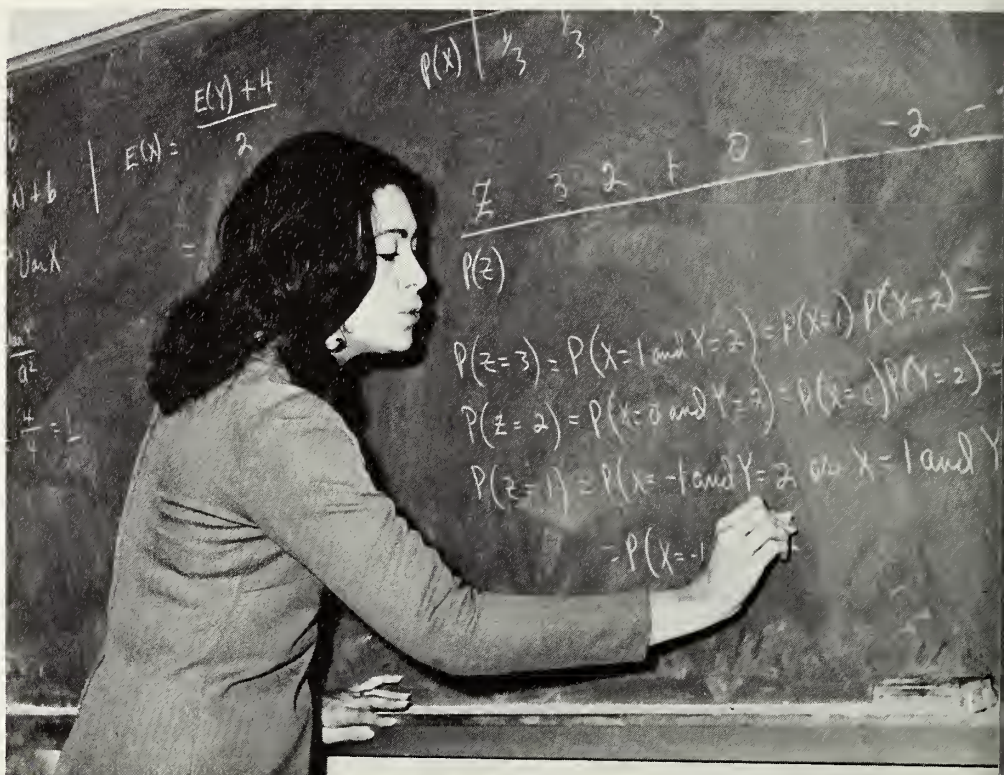 b
(x)+b
Var X
a²
4/4 = 1
E(X) = E(Y)+4 / 2
=
P(X) 1/3 1/3 1/3
Z 3 2 1 0 -1 -2 -
P(Z)
P(Z=3) = P(X=1 and Y=2) = P(X=1) P(Y=2) =
P(Z=2) = P(X=0 and Y=2) = P(X=0) P(Y=2) =
P(Z=1) = P(X=-1 and Y=2 or X=1 and Y
=P(X=-1